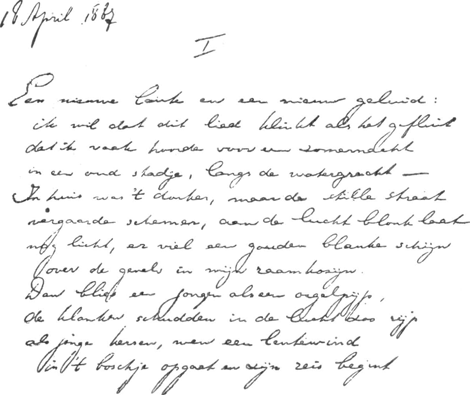 18 April 1887
I
Een nieuwe lente en een nieuw geluid:
ik wil dat dit lied klinkt als het gefluit
dat ik vaak hoorde voor een zomernacht
in een oud stadje, langs de watergracht —
In huis was 't donker, maar de stille straat
vergaarde schemer, aan de lucht blonk laat
nog licht, er viel een gouden blanke schijn
over de gevels in mijn raamkozijn.
Dan blies een jongen als een orgelpijp,
de klanken schudden in de lucht zoo rijp
als jonge kersen, wen een lentewind
in 't boschje opgaat en zijn reis begint